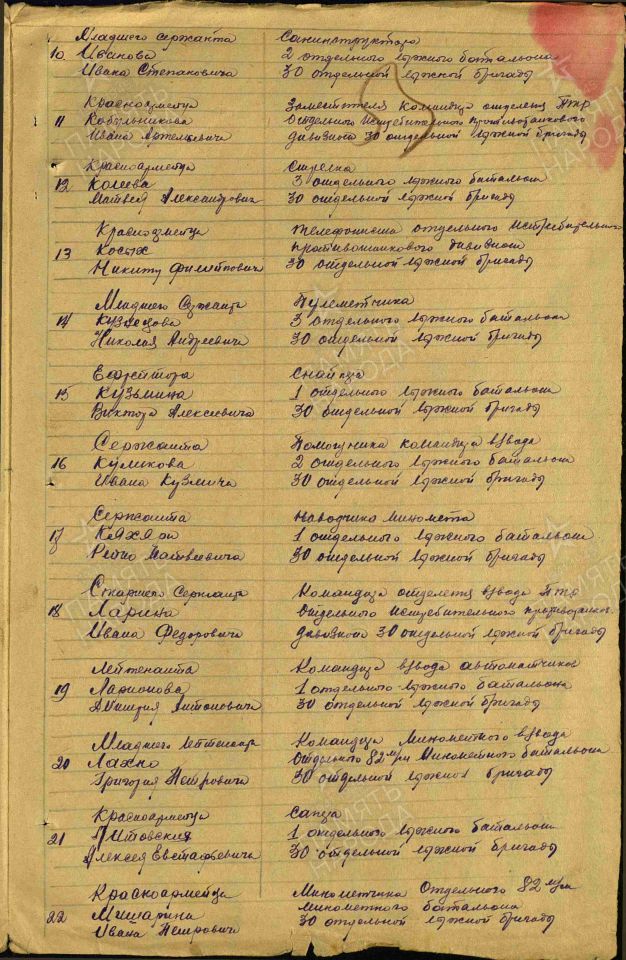 Младшего сержанта Санинструктора
10 Иванова 2 отдельного лыжного батальона
Ивана Степановича 30 отдельной лыжной бригады
Красноармейца Заместителя командира отделения ПТР
11 Кобыльникова Отдельного Истребительного противотанкового
Ивана Артемовича дивизиона 30 отдельной лыжной бригады
Красноармейца Стрелка
12 Колеева 3 отдельного лыжного батальона
Матвея Александрович 30 отдельной лыжной бригады
Красноармейца Телефониста отдельного Истребительного
13 Косых противотанкового дивизиона
Никиту Филипповича 30 отдельной лыжной бригады
Младшего Сержанта Пулеметчика
14 Кузнецова 3 отдельного лыжного батальона
Николая Андреевича 30 отдельной лыжной бригады
Ефрейтора Снайпера
15 Кузьмина 1 отдельного лыжного батальона
Виктора Алексеевича 30 отдельной лыжной бригады
Сержанта Помощника командира взвода
16 Куликова 2 отдельного лыжного батальона
Ивана Кузмича 30 отдельной лыжной бригады
Сержанта Наводчика миномета
17 1 отдельного лыжного батальона
Матвеевича 30 отдельной лыжной бригады
Старшего Сержанта Командира отделения взвода ПТР
18 Ларина Отдельного Истребительного противотанков.
Ивана Федоровича дивизиона 30 отдельной лыжной бригады
Лейтенанта Командира взвода автоматчиков
19 Ларионова 1 отдельного лыжного батальона
Дмитрия Антоновича 30 отдельной лыжной бригады
Младшего Лейтенанта Командира Минометного взвода
20 Лахно Отдельного 82 м/м Минометного батальона
Григория Петровича 30 отдельной лыжной бригады
Красноармейца Сапера
21 Литовския 1 отдельного лыжного батальона
Алексея Евстафьевича 30 отдельной лыжной бригады
Красноармейца Минометчика Отдельного 82 м/м
22 Мишарина минометного батальона
Ивана Петровича 30 отдельной лыжной бригады
ПАМЯТЬ НАРОДА